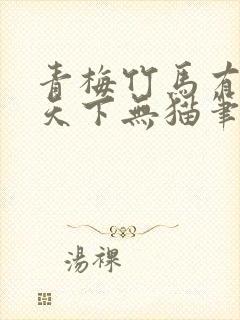 青梅竹馬有
天下無貓筆
湯裸